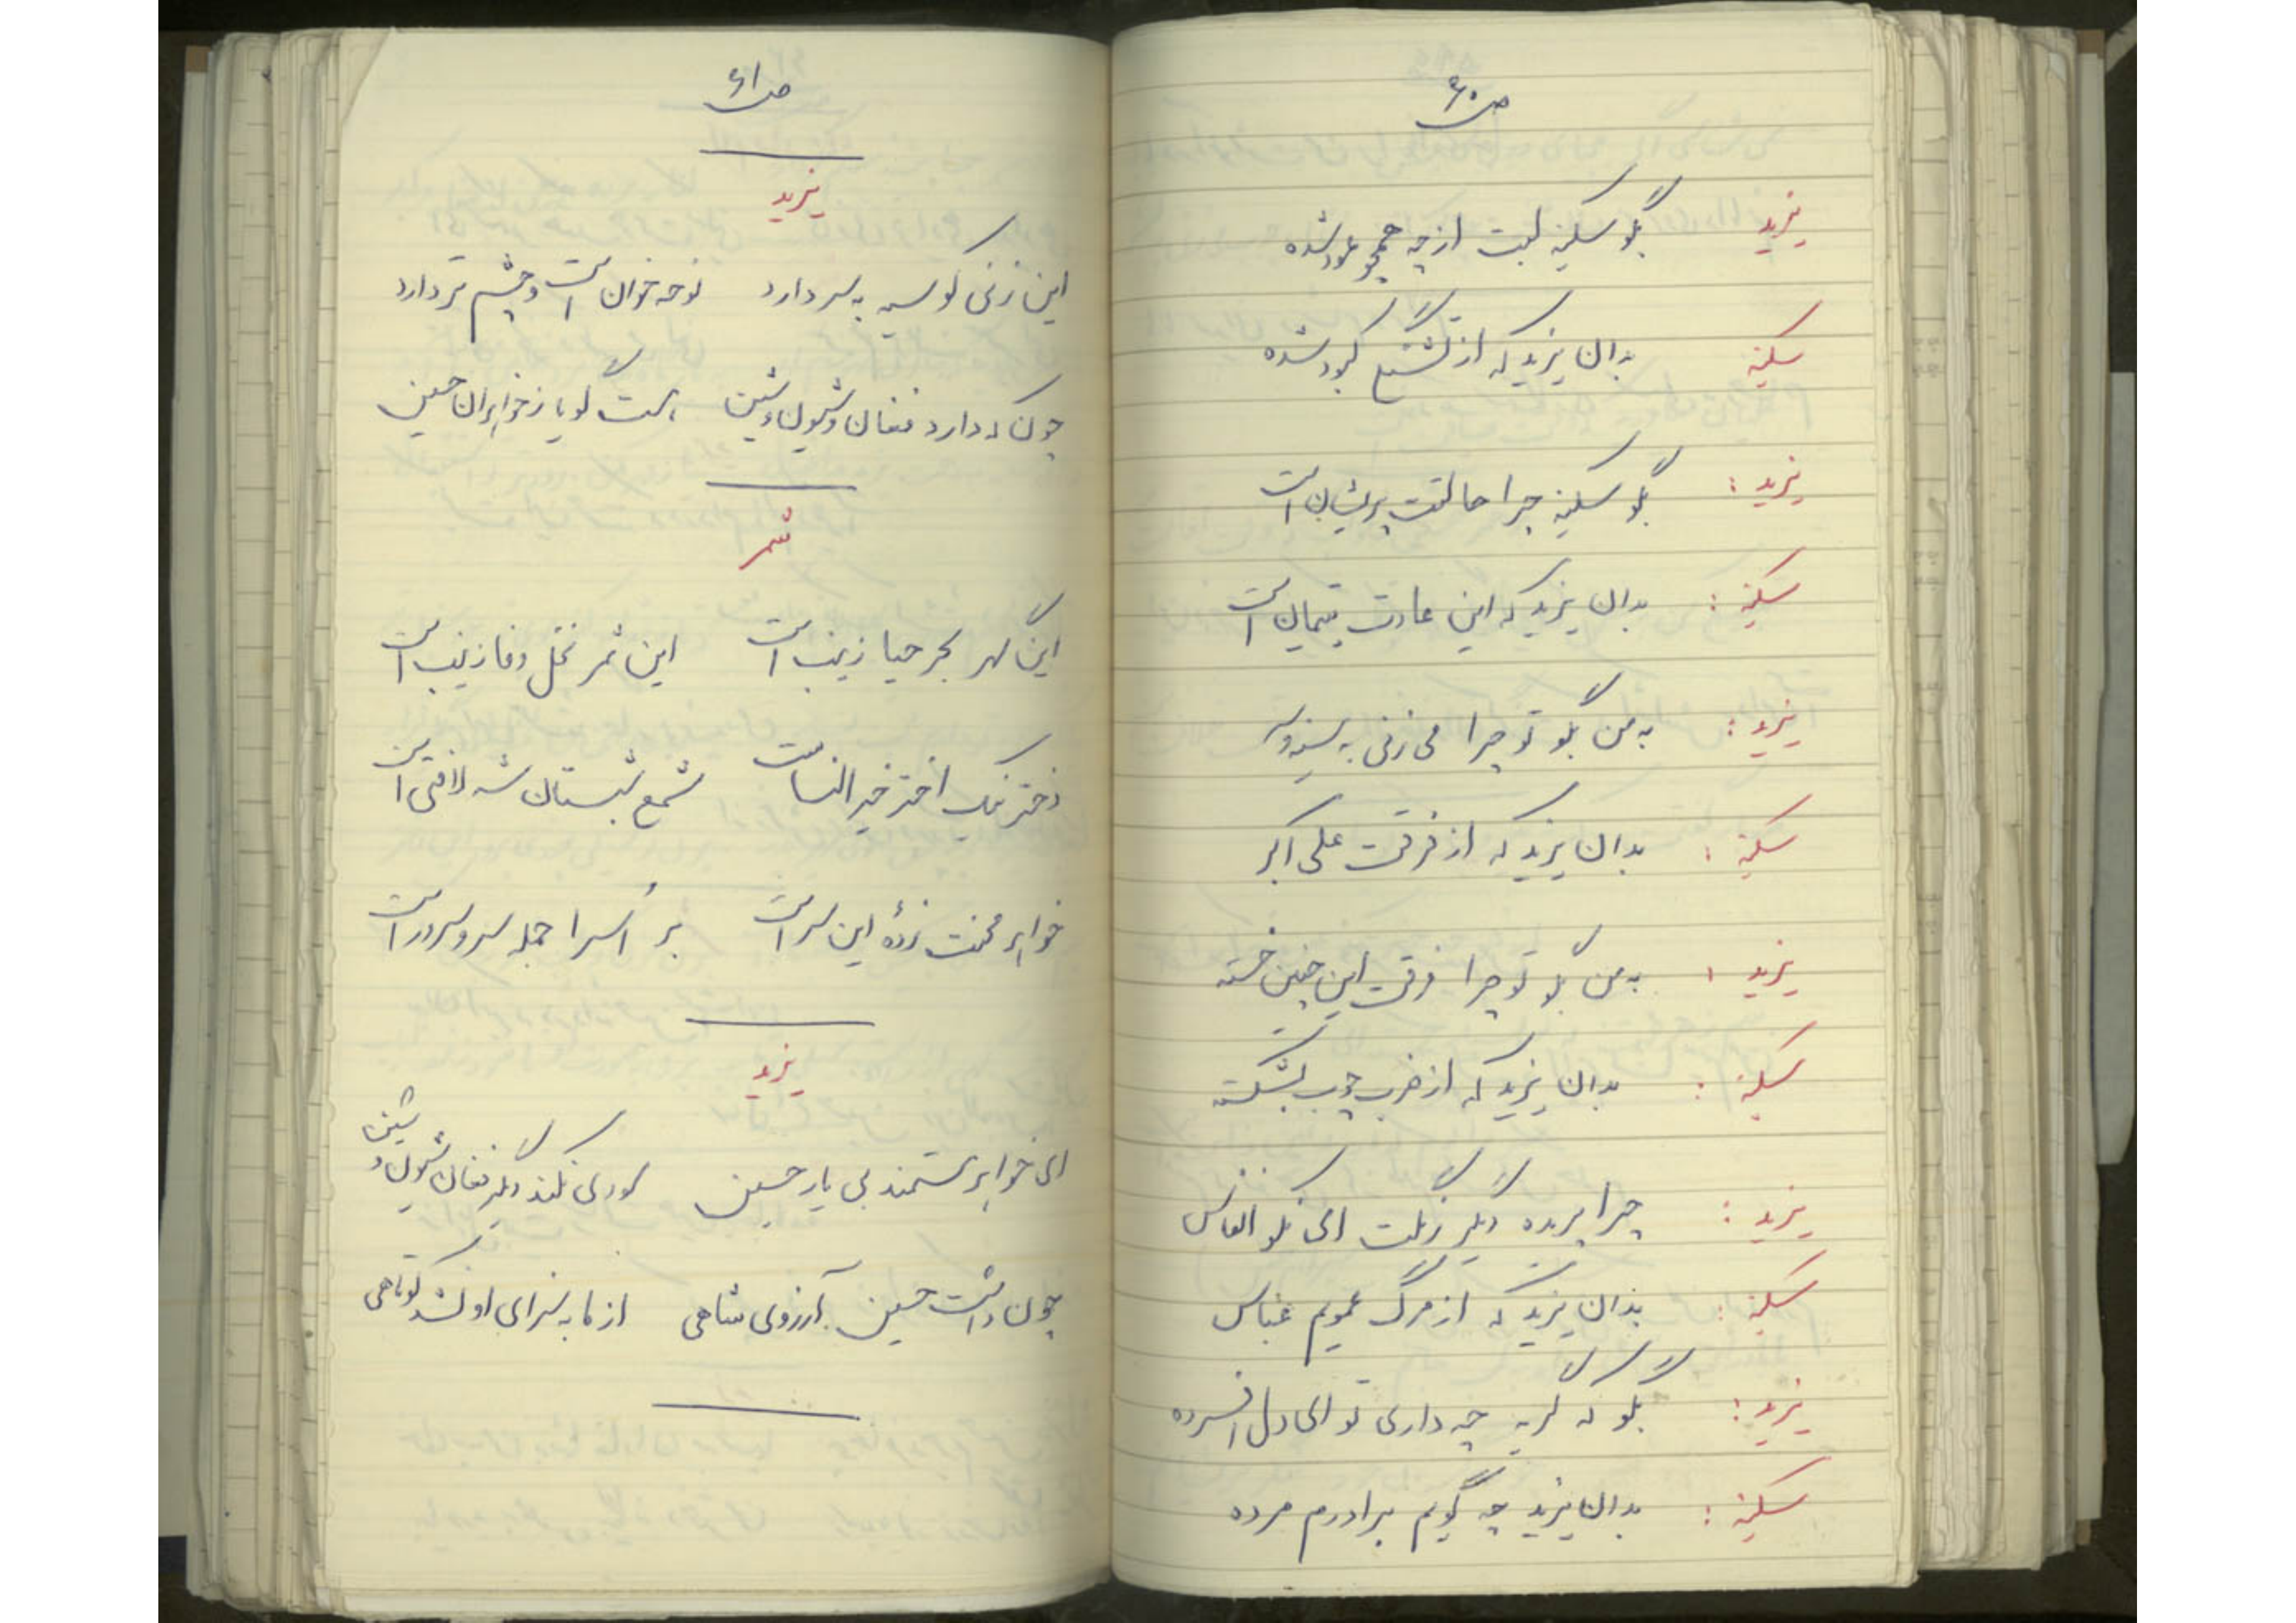 ص ۶۰
یزید بگو سکینه لبت از چه همچو عود شده
سکینه بدان یزید که از تشنگی کبود شده
یزید: بگو سکینه چرا حالتت پریشان است
سکینه: بدان یزید که این عادت یتیمان است
یزید: به من بگو تو چرا می زنی به سینه و سر
سکینه: بدان یزید که از فرقت علی اکبر
یزید: به من بگو تو چرا فرقت این چنین خسته
سکینه: بدان یزید که از ضرب چوب بشکسته
یزید: چرا پریده دیگر رنگت ای نکو انفاس
سکینه: بدان یزید که از مرگ عمویم عباس
یزید: بگو که گریه چه داری تو ای دل افسرده
سکینه: بدان یزید چه گویم برادرم مرده
ص ۶۱
یزید
این زنی کو سیه به سر دارد نوحه خوان است و چشم تر دارد
چون که دارد فغان و شیون و شین است گویا ز خواهران حسین
شمر
این گهر بحر حیا زینب است این ثمر نخل وفا زینب است
دختر نیک اختر خیر النساست شمع شبستان شه لافتی است
خواهر محنت زدهٔ این سر است بر اُسرا جمله سر و سرور است
یزید
ای خواهر مستمند بی یار حسین کو دل نکند دیگر فغان شیون و شین
چون داشت حسین آرزوی شاهی از ما به سرای او نشد کوتاهی